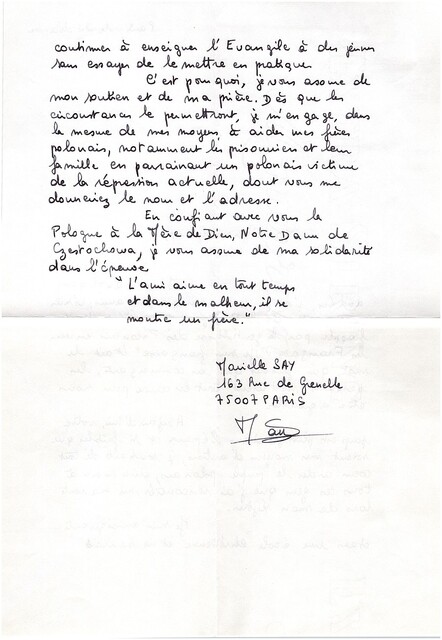 continuer à enseigner l'Evangile à des jeunes
sans essayer de le mettre en pratique.
C'est pourquoi, je vous assure de
mon soutien et de ma prière. Dès que les
circonstances le permettront, je m'engage, dans
la mesure de mes moyens, à aider mes frères
polonais, notamment les prisonniers et leur
famille en parrainant un polonais victime
de la répression actuelle, dont vous me
donneriez le nom et l'adresse.
En confiant avec vous la
Pologne à la Mère de Dieu, Notre Dame de
Czestochowa, je vous assure de ma solidarité
dans l'épreuve
"L'ami aime en tout temps
et dans le malheur, il se
montre un frère."
Marielle SAY
163 Rue de Grenelle
75007 PARIS
M Say